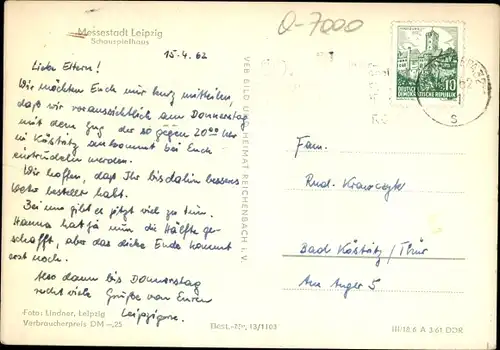 Messestadt Leipzig
Schauspielhaus
Q-7000
15.4.62
Liebe Eltern!
Wir möchten Euch nur kurz mitteilen,
daß wir voraussichtlich am Donnerstag
mit dem Zug der so gegen 20⁰⁰ Uhr
in Köstritz ankommt bei Euch
eintrudeln werden.
Wir hoffen, daß Ihr bis dahin besseres
Wetter bestellt habt.
Bei uns gibt es jetzt viel zu tun.
Hanna hat ja nun die Hälfte ge-
schafft, aber das dicke Ende kommt
erst noch.
Also dann bis Donnerstag
recht viele Grüße von Euren
Leipzigern.
Foto: Lindner, Leipzig
Verbraucherpreis DM -,25
VEB BILD UND HEIMAT REICHENBACH I. V.
DEUTSCHE
DEMOKRATISCHE REPUBLIK
10
Fam.
Rud. Krawczyk
Bad Köstritz / Thür
Am Anger 5
13/1103
III/18/6 A 3/61 DDR